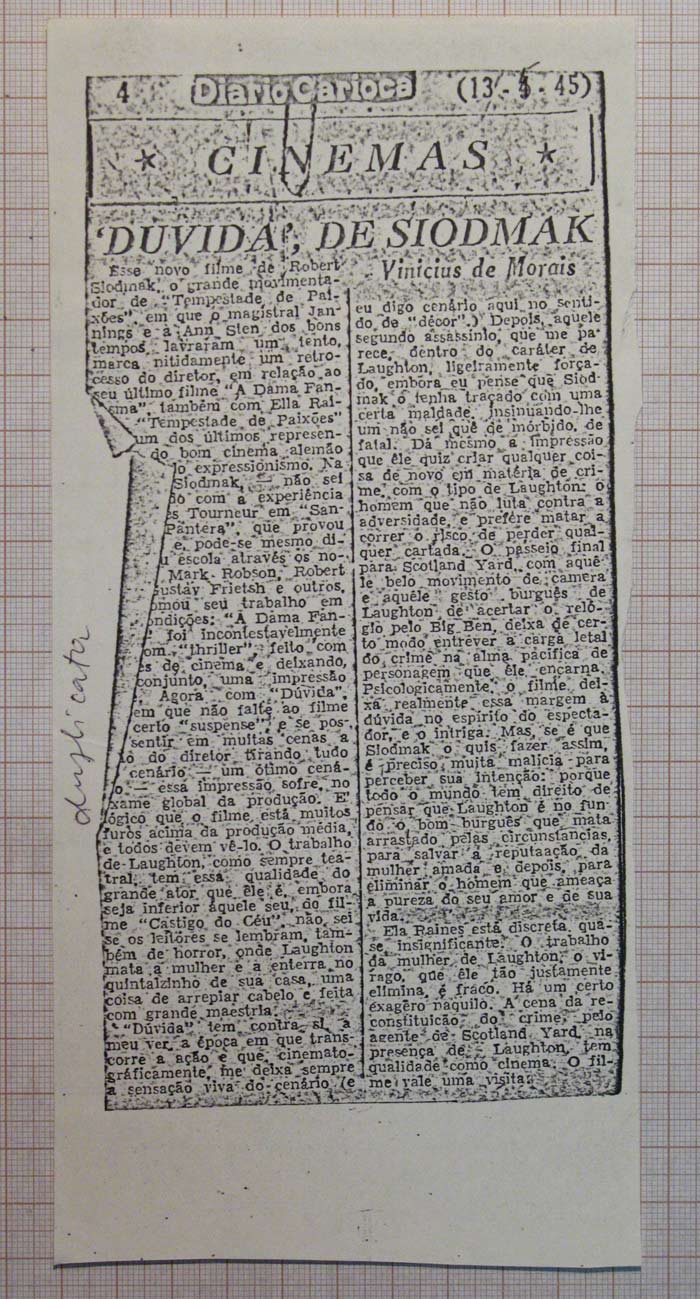 4 Diario Carioca (13-4-45)
* CINEMAS *
'DUVIDA', DE SIODMAK
Vinicius de Morais
Esse novo filme de Robert
Siodmak, o grande movimenta-
dor de "Tempestade de Pai-
xões", em que o magistral Jan-
nings e a Ann Sten dos bons
tempos lavraram um tento,
marca nitidamente um retro-
cesso do diretor, em relação ao
seu último filme "A Dama Fan-
sma", também com Ella Rai-
"Tempestade de Paixões"
um dos últimos represen-
do bom cinema alemão
lo expressionismo. Na
Siodmak, — não sei
ão com a experiência
es Tourneur em "San-
Pantera", que provou
e, pode-se mesmo di-
u escola através os no-
Mark Robson, Robert
Gustav Frietsh e outros,
omou seu trabalho em
ondições: "A Dama Fan-
foi incontestavelmente
om "thriller", feito com
es de cinema e deixando,
conjunto, uma impressão
Agora com "Dúvida",
em que não falte ao filme
certo "suspense", e se pos-
sentir em muitas cenas a
ão do diretor tirando tudo
cenário — um ótimo cená-
o — essa impressão sofre, no
xame global da produção. E'
lógico que o filme está muitos
furos acima da produção média,
e todos devem vê-lo. O trabalho
de Laughton, como sempre tea-
tral, tem essa qualidade do
grande ator que êle é, embora
seja inferior àquele seu, do fil-
me "Castigo do Céu", não sei
se os leitores se lembram, tam-
bém de horror, onde Laughton
mata a mulher e a enterra no
quintalzinho de sua casa, uma
coisa de arrepiar cabelo e feita
com grande maestria.
"Dúvida" tem contra si, a
meu ver, a época em que trans-
corre a ação e que cinemato-
gráficamente, me deixa sempre
a sensação viva do cenário (e
eu digo cenário aqui no senti-
do de "décor".) Depois, aquele
segundo assassínio, que me pa-
rece, dentro do caráter de
Laughton, ligeiramente força-
do, embora eu pense que Siod-
mak o tenha traçado com uma
certa maldade, insinuando-lhe
um não sei quê de mórbido, de
fatal. Dá mesmo a impressão
que êle quiz criar qualquer coi-
sa de novo em matéria de cri-
me, com o tipo de Laughton: o
homem que não luta contra a
adversidade, e prefere matar a
correr o risco de perder qual-
quer cartada. O passeio final
para Scotland Yard, com aquê-
le belo movimento de camera
e aquêle gesto burguês de
Laughton de acertar o reló-
gio pelo Big Ben, deixa de cer-
to modo entrever a carga letal
do crime na alma pacífica de
personagem que êle encarna.
Psicologicamente, o filme dei-
xa realmente essa margem à
dúvida no espírito do especta-
dor, e o intriga. Mas, se é que
Siodmak o quis fazer assim,
é preciso muita malícia para
perceber sua intenção: porque
todo o mundo tem direito de
pensar que Laughton é no fun-
do o bom burguês que mata
arrastado pelas circunstâncias,
para salvar a reputaação da
mulher amada e depois, para
eliminar o homem que ameaça
a pureza do seu amor e de sua
vida.
Ela Raines está discreta, qua-
se insignificante. O trabalho
da mulher de Laughton, o vi-
rago, que êle tão justamente
elimina, é fraco. Há um certo
exagêro naquilo. A cena da re-
constituição do crime, pelo
agente de Scotland Yard, na
presença de Laughton, tem
qualidade como cinema. O fil-
me vale uma visita.
duplicata